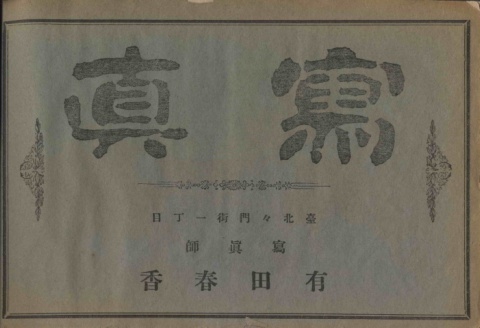 寫真
臺北々門街一丁目
寫眞師
有田春香